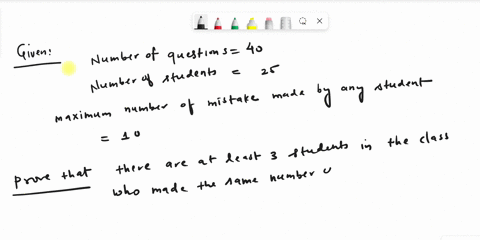 Given:
Number of questions = 40
Number of students = 25
maximum number of mistake made by any student
= 10
Prove that there are at least 3 students in the class
who made the same number